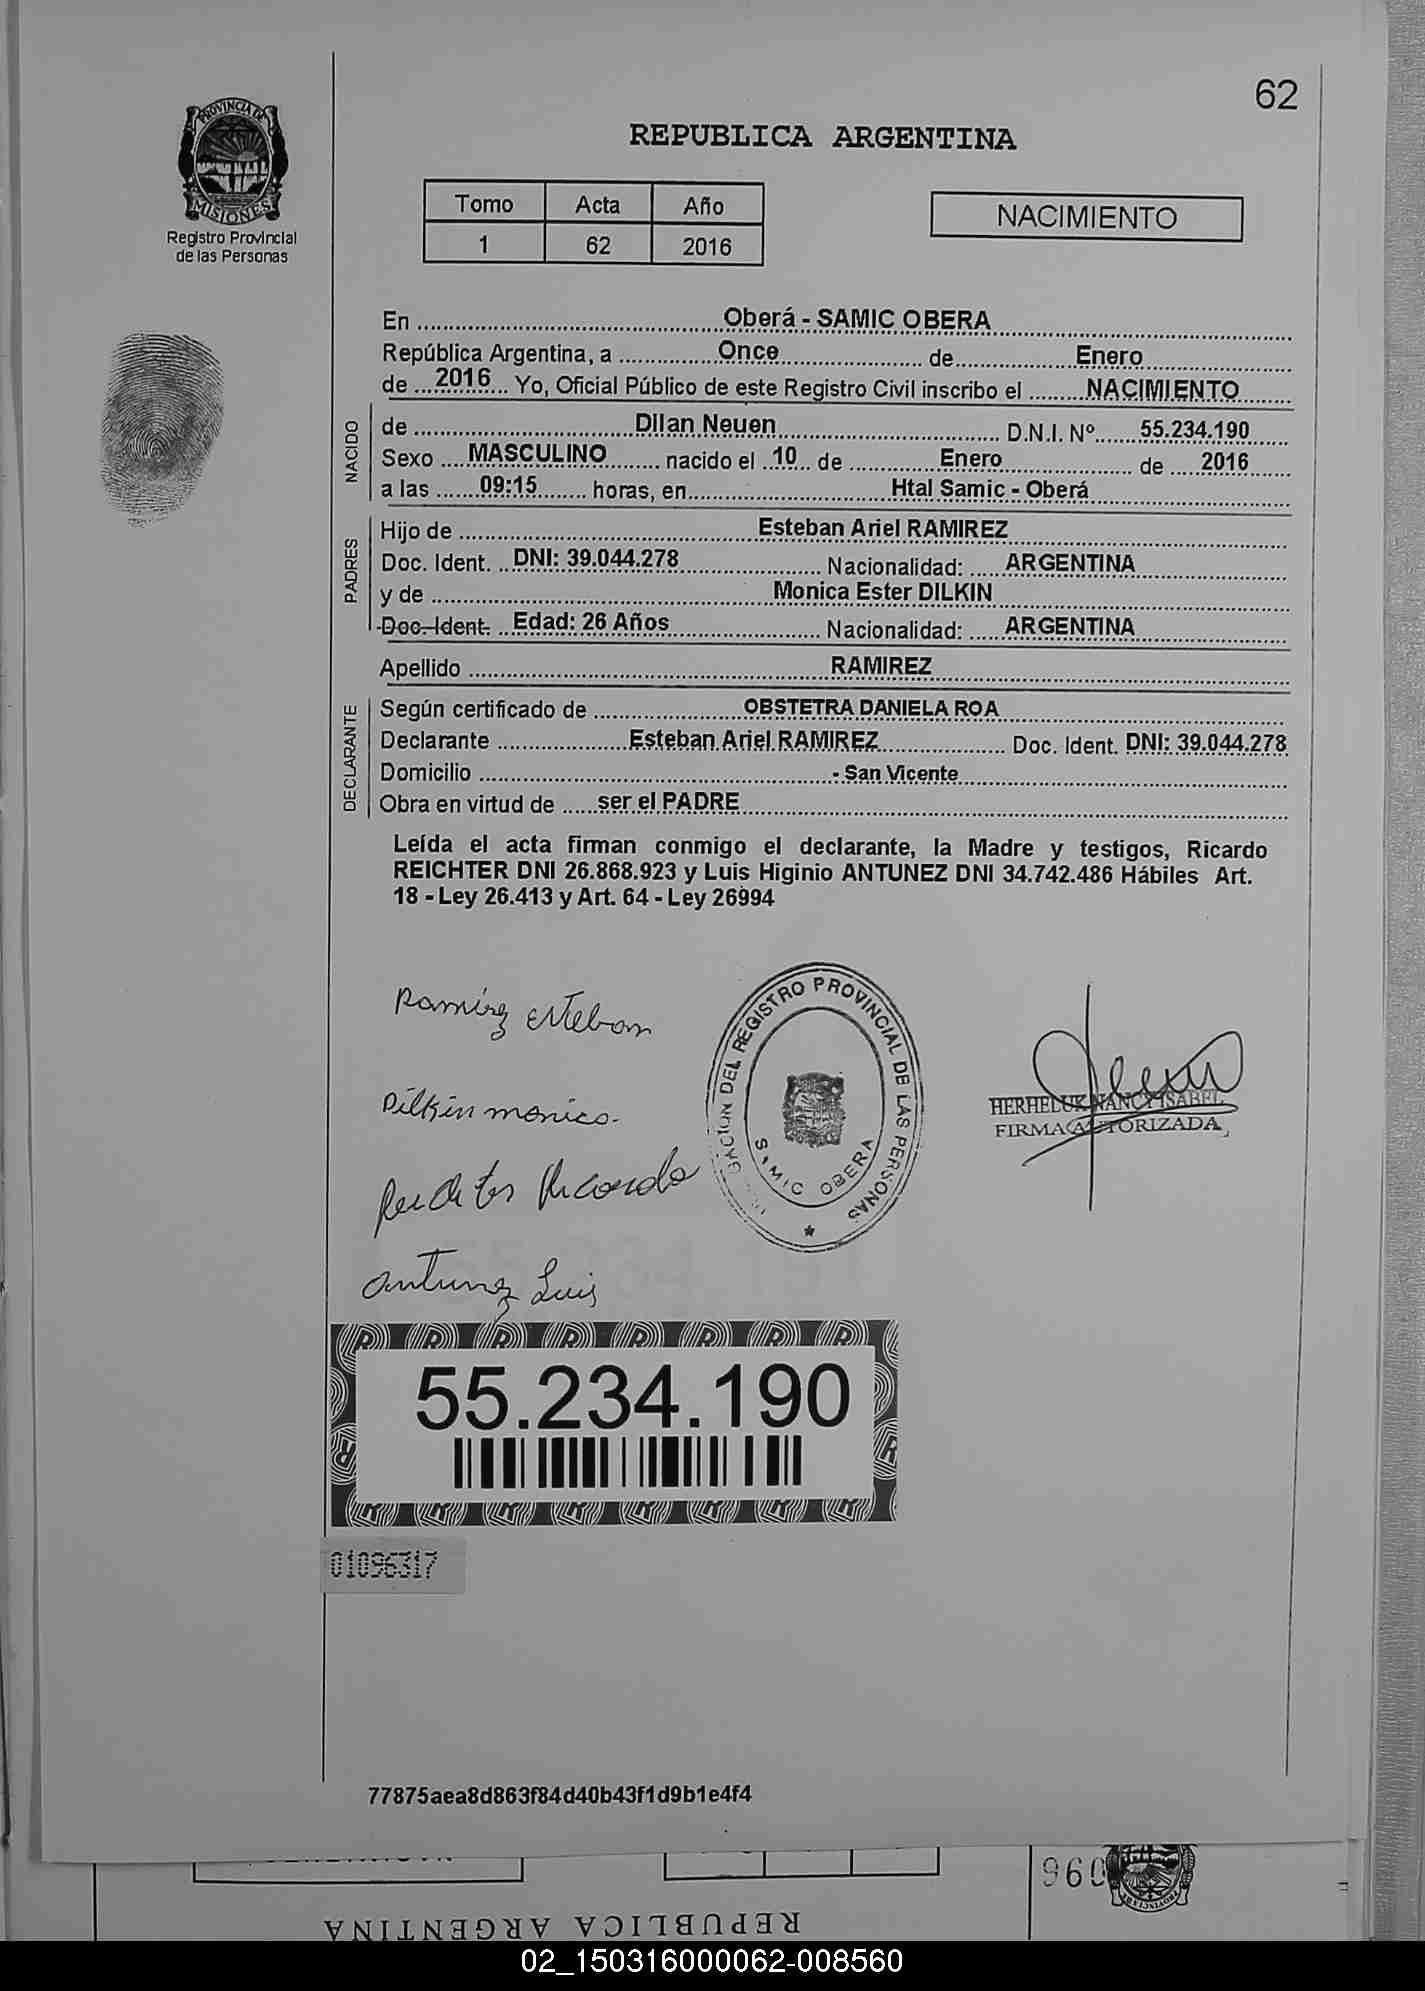 62
PROVINCIA DE
MISIONES
Registro Provincial
de las Personas
REPUBLICA ARGENTINA
Tomo Acta Año
1 62 2016
NACIMIENTO
En Oberá - SAMIC OBERA
República Argentina, a Once de Enero
de 2016 Yo, Oficial Público de este Registro Civil inscribo el NACIMIENTO
NACIDO
de Dilan Neuen D.N.I. Nº 55.234.190
Sexo MASCULINO nacido el 10 de Enero de 2016
a las 09:15 horas, en Htal Samic - Oberá
PADRES
Hijo de Esteban Ariel RAMIREZ
Doc. Ident. DNI: 39.044.278 Nacionalidad: ARGENTINA
y de Monica Ester DILKIN
Doc. Ident. Edad: 26 Años Nacionalidad: ARGENTINA
Apellido RAMIREZ
DECLARANTE
Según certificado de OBSTETRA DANIELA ROA
Declarante Esteban Ariel RAMIREZ Doc. Ident. DNI: 39.044.278
Domicilio - San Vicente
Obra en virtud de ser el PADRE
Leída el acta firman conmigo el declarante, la Madre y testigos, Ricardo
REICHTER DNI 26.868.923 y Luis Higinio ANTUNEZ DNI 34.742.486 Hábiles Art.
18 - Ley 26.413 y Art. 64 - Ley 26994
Ramirez esteban
Dilkin monica.
Reichter Ricardo
antunez Luis
DEL REGISTRO PROVINCIAL DE LAS PERSONAS
SAMIC OBERA
HERHELUK NANCY ISABEL
FIRMA AUTORIZADA
55.234.190
01096317
77875aea8d863f84d40b43f1d9b1e4f4
REPUBLICA ARGENTINA
02_150316000062-008560